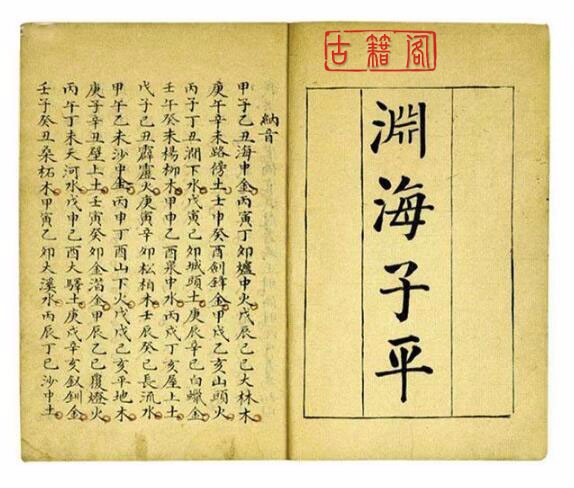 古籍阁
淵海子平
納音
甲子乙丑海中金丙寅丁卯爐中火戊辰己巳大林木
庚午辛未路傍土壬申癸酉劍鋒金甲戌乙亥山頭火
丙子丁丑澗下水戊寅己卯城頭土庚辰辛巳白蠟金
壬午癸未楊柳木甲申乙酉泉中水丙戌丁亥屋上土
戊子己丑霹靂火庚寅辛卯松柏木壬辰癸巳長流水
甲午乙未沙中金丙申丁酉山下火戊戌己亥平地木
庚子辛丑壁上土壬寅癸卯金箔金甲辰乙巳覆燈火
丙午丁未天河水戊申己酉大驛土庚戌辛亥釵釧金
壬子癸丑桑柘木甲寅乙卯大溪水丙辰丁巳沙中土